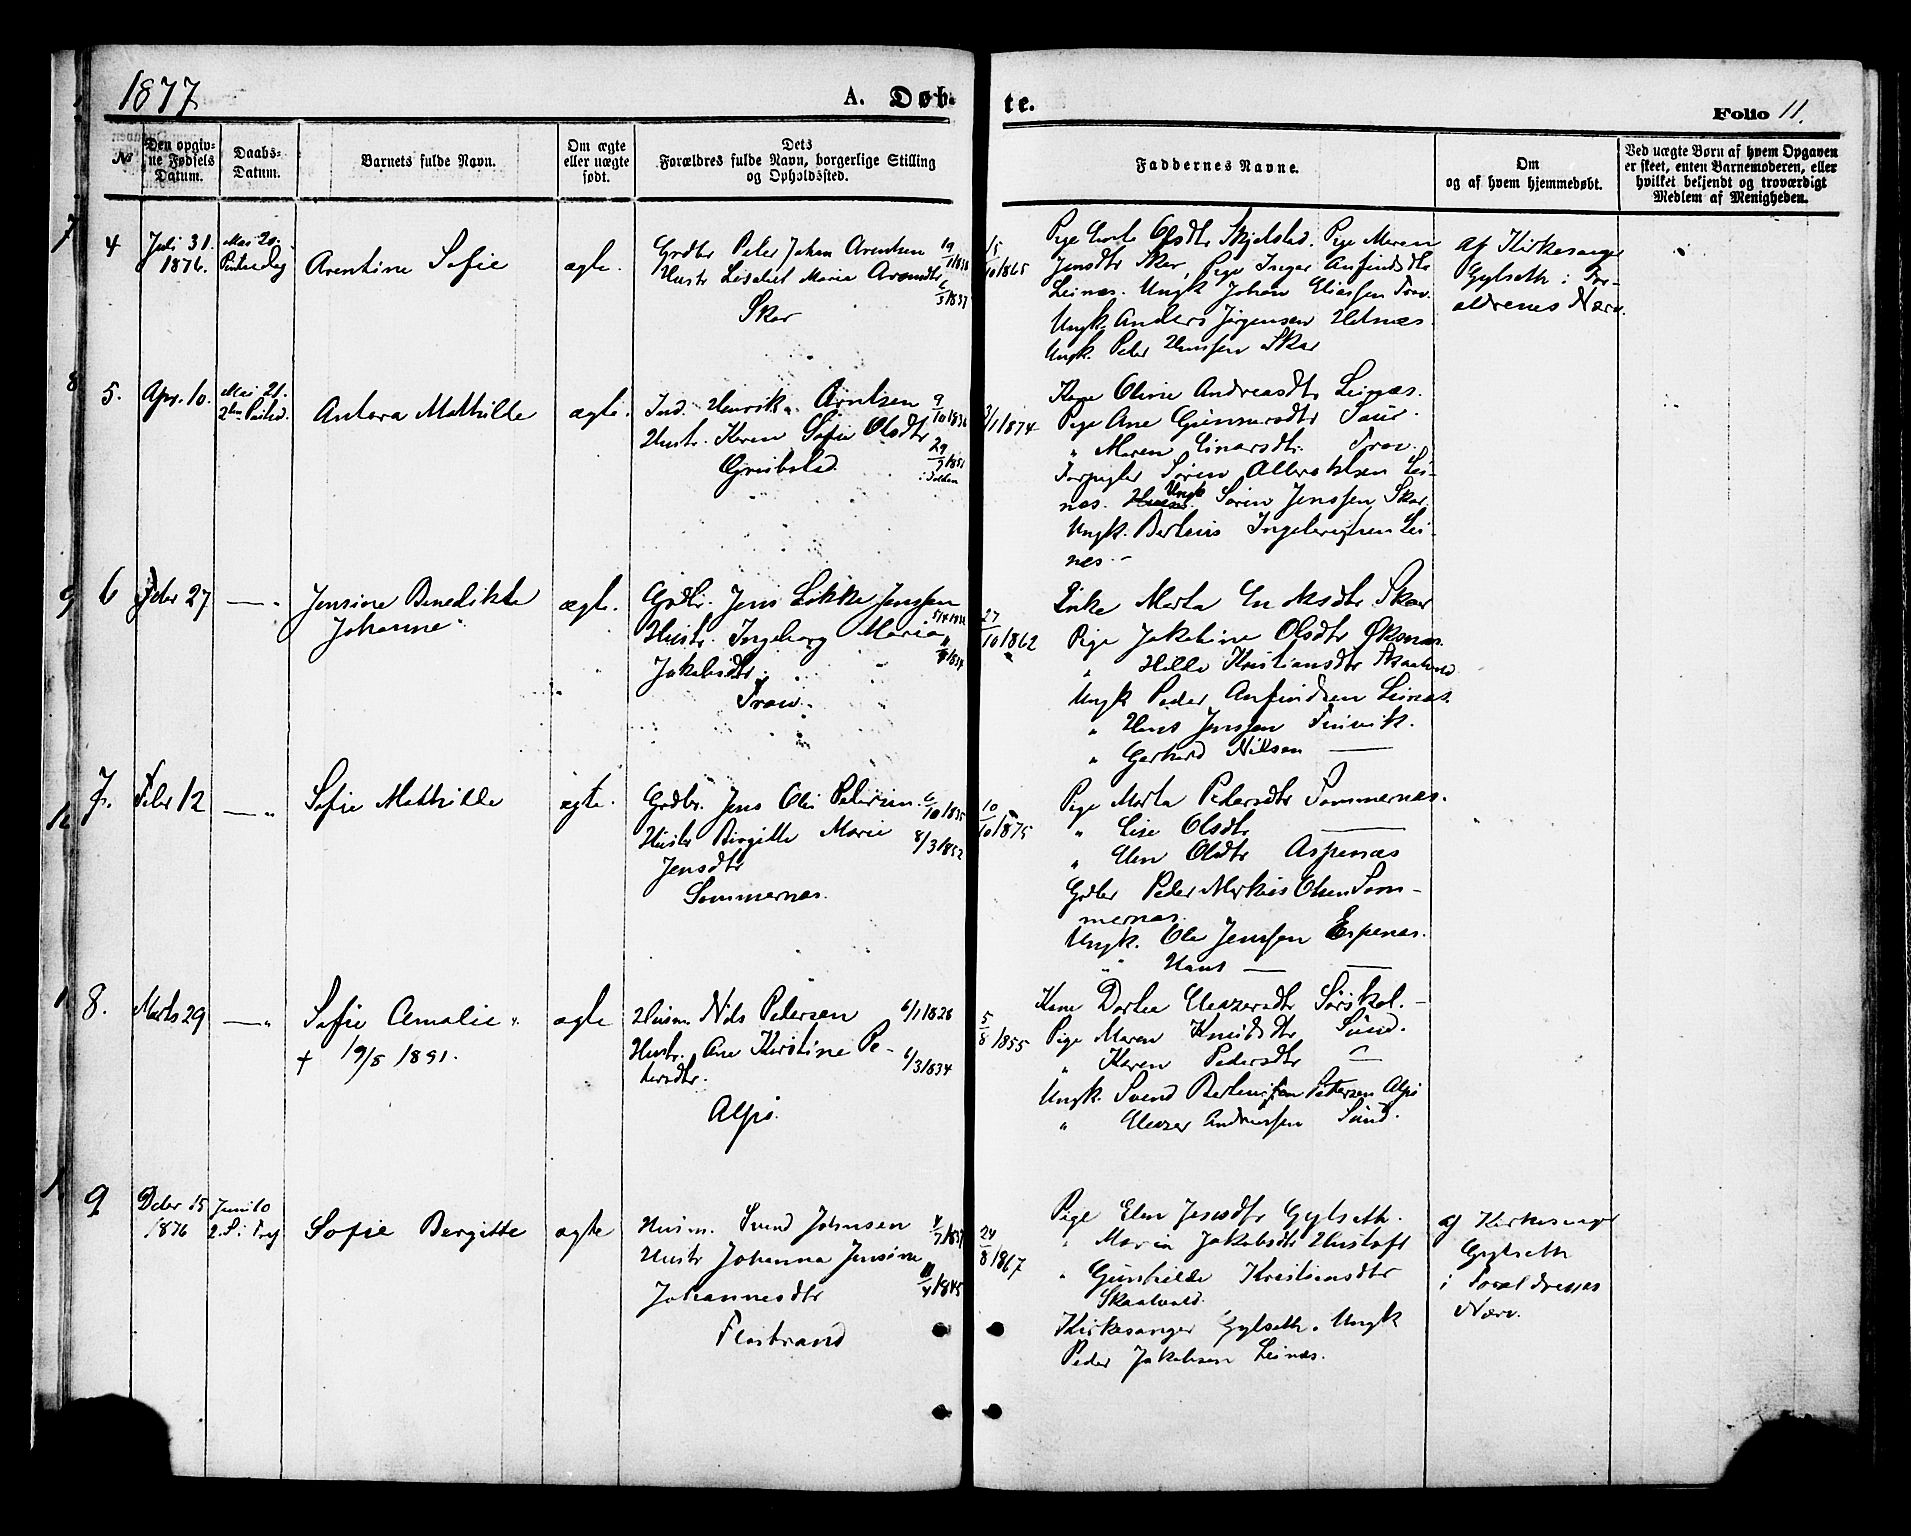 1877
A. Døb-
te.
Folio 11.
№
Den opgiv-
ne Fødsels
Datum.
Daabs-
Datum.
Barnets fulde Navn.
Om ægte
eller uægte
født.
Dets
Forældres fulde Navn, borgerlige Stilling
og Opholdssted.
Faddernes Navne.
Om
og af hvem hjemmedøbt.
Ved uægte Børn af hvem Opgaven
er skeet, enten Barnemoderen, eller
hvilket bekjendt og troværdigt
Medlem af Menigheden.
4
Juli 31.
1876.
Mai 20.
Pintsedag
Arentine Sofie
ægte.
Grdbr Peter Johan Arentsen
Hustr Lisabet Maria Arendtsdtr
Skar
15/10 1865
Pige Olsdtr Skjelstad. Pige Maren
Jensdtr Skar, Pige Inger Anfindsdtr
Leinæs. Ungk Johan Eliassen Trov.
Ungk. Anders Jørgensen Helnæs.
Ungk. Peder Hanssen Skar
af Kirkesanger
Gylseth i For-
ældrenes Nærv.
5.
Apr. 10.
Mai 21.
Antora Mathilde
ægte.
Ind. Henrik Arntsen 9/10 1836
Hustr. Karen Sofie Olsdtr
i Folden
3/1 1874
Kone Oline Andreasdtr Leinæs.
Pige Ane Gunnarsdtr
" Maren Einarsdtr. Trov.
Søren Albrektsen Lei-
næs. Ungk Søren Jenssen Skar
Ungk. Berteus Ingebrigtsen Lei-
næs. -
6
Feber 27
— "
Jensine Benedikte
Johanne
ægte.
Grdbr. Jens Løkke Jenssen
Hustr. Ingeborg Maria
Jakobsdtr.
Trov.
27/10 1862
Enke Marta Enoksdtr Skar
Pige Jakobine Olsdtr Øksnæs.
" Hilde Kristiansdtr Skaalvold
Ungk Peder Anfindsen Leinæs.
" Hans Jenssen Finvik.
" Gerhard Nilsen —
7.
Feber 12
— "
Sofie Mathilde
ægte.
Grdbr. Jens Oli Petersen 6/10 1835
Hustr Birgitte Marie 8/3 1852
Jensdtr
Sommernæs.
10/10 1875
Pige Marta Pedersdtr Sommernæs.
" Lise Olsdtr —
" Elen Olsdtr Aspenæs
Grdbr Peder Markus Olsen Som-
mernæs.
Ungk. Ole Jenssen Espenæs.
" Hans — —
8.
Marts 29
— "
Sofie Amalie.
† 19/5 1891.
ægte
Husm. Nils Petersen 6/1 1828
Hustr. Ane Kirstine Pe- 6/3 1834
tersdtr.
Alpø.
5/8 1855
Kone Dortea Eleazersdtr Sørskot. -
Pige Maren Knudsdtr Sund.
" Karen Pedersdtr —
Ungk. Svend Petersen Alpø
" Eleazer Andreassen Sund.
9
Dcber 15
1876
Juni 10
2. S. i Tref
Sofie Bergitte
ægte
Husm. Svend Johnsen
Hustr Johanna Jensine 11/4 1845
Johannesdtr
Flostrand
24/8 1867
Pige Elen Jensdtr Gylseth.
" Maria Jakobsdtr Hustoft
" Gunhilde Kristiansdtr
Skaalvold.
Kirkesanger Gylseth. Ungk
Peder Jakobsen Leinæs.
af Kirkesanger
Gylseth
i Forældrenes
Nærv.